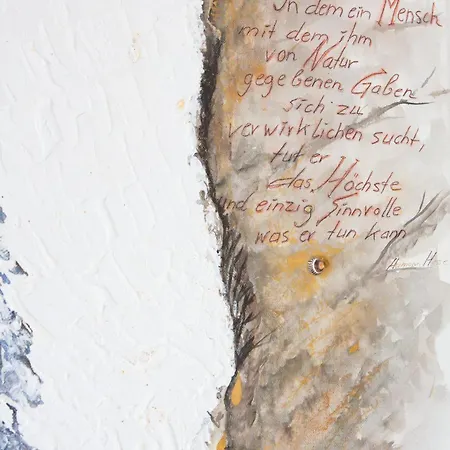 In dem ein Mensch
mit dem ihm
von Natur
gegebenen Gaben
sich zu
verwirklichen sucht,
tut er
das Höchste
und einzig Sinnvolle
was er tun kann